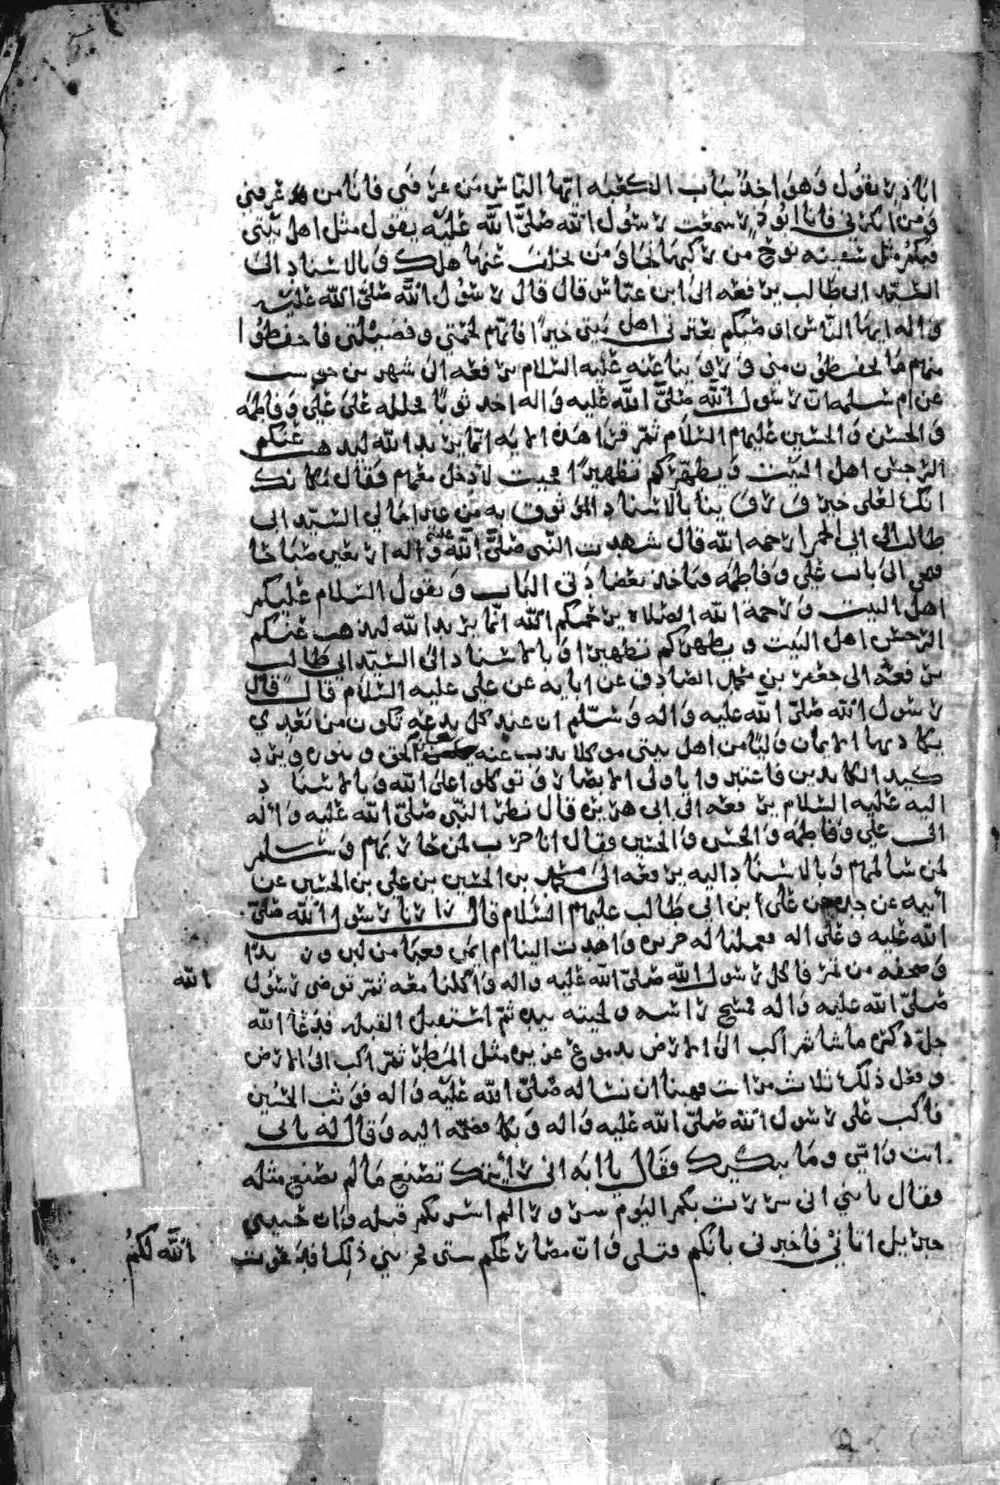 اباذر يقول وهو اخذ بباب الكعبة ايها الناس من عرفني فانا من عرفني
ومن انكرني فانا ابوذر سمعت رسول الله صلى الله عليه يقول مثل اهل بيتي
فيكم مثل سفينة نوح من ركبها نجا ومن تخلف عنها هلك وبالاسناد الى
السيد ابي طالب يرفعه الى ابن عباس قال قال رسول الله صلى الله عليه
واله ايها الناس اوصيكم بعترتي اهل بيتي خيرا فانهم لحمتي وفصيلتي فاحفظوا
منهم ما تحفظون مني وروينا عنه عليه السلام يرفعه الى شهر بن حوشب
عن ام سلمة ان رسول الله صلى الله عليه واله اخذ ثوبا فجلله على علي وفاطمة
والحسن والحسين عليهم السلام ثم قرا هذه الاية انما يريد الله ليذهب عنكم
الرجس اهل البيت ويطهركم تطهيرا فجيت لادخل معهم فقال مكانك
انك لعلى خير وروينا بالاسناد الموثوق به من غير امالي السيد ابي
طالب الى ابي الحمرا رحمه الله قال شهدت النبي صلى الله عليه واله اربعين صباحا
يجي الى باب علي وفاطمة فياخذ بعضادتي الباب ويقول السلام عليكم
اهل البيت ورحمة الله الصلاة يرحمكم الله انما يريد الله ليذهب عنكم
الرجس اهل البيت ويطهركم تطهيرا وبالاسناد الى السيد ابي طالب
يرفعه الى جعفر بن محمد الصادق عن ابايه عن علي عليه السلام قال قال
رسول الله صلى الله عليه واله وسلم ان عند كل بدعة تكون من بعدي
يكاد بها الايمان وليا من اهل بيتي موكلا يذب عنه الحق وينوره ويرد
كيد الكايدين فاعتبروا يا اولي الابصار وتوكلوا على الله وبالاسناد
اليه عليه السلام يرفعه الى ابي هريرة قال نظر النبي صلى الله عليه واله
الى علي وفاطمة والحسن والحسين وقال انا حرب لمن حاربهم وسلم
لمن سالمهم وبالاسناد اليه يرفعه الى محمد بن الحسين بن علي بن الحسين عن
ابيه عن جده عن علي ابن ابي طالب عليهم السلام قال زارنا رسول الله صلى
الله عليه وعلى اله فعملنا له حريرة واهدت الينا ام ايمن قعبا من لبن وزبدا
وصحفة من تمر فاكل رسول الله صلى الله عليه واله واكلنا معه ثم توضى رسول الله
صلى الله عليه واله فمسح راسه ولحيته بيده ثم استقبل القبلة فدعا الله
جل ذكره ما شا ثم اكب الى الارض بدموع غزيرة مثل المطر ثم اكب الى الارض
وفعل ذلك ثلاث مرات فهبنا ان نساله صلى الله عليه واله فوثب الحسين
فاكب على رسول الله صلى الله عليه واله وبكا فضمه اليه وقال له بابي
انت وامي وما يبكيك فقال يا ابه اني رايتك تصنع ما لم تصنع مثله
فقال يا بني اني سررت بكم اليوم سرورا لم اسر بكم قبله وان حبيبي
جبريل اتاني فاخبرني بانكم قتلى وان مصارعكم شتى فحزنني ذلك فدعوت الله لكم